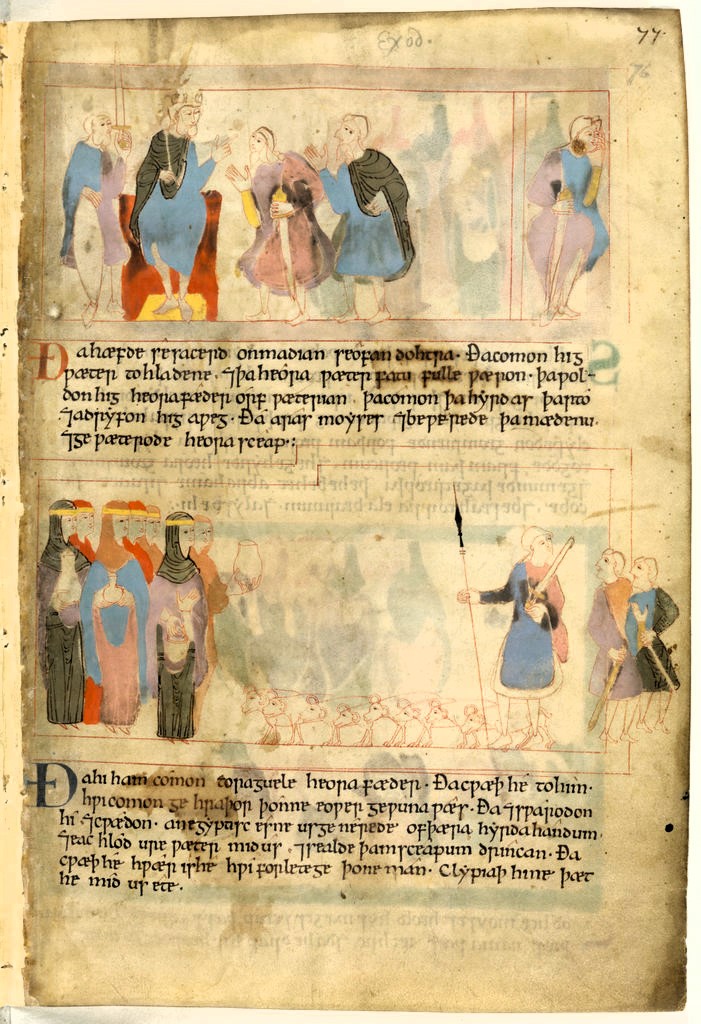 Exod.
77
76
Ða hæfde se sacerd on madian seofan dohtra. Ða comon hig
ƿæter to hladene. ⁊ þa heora ƿæter fatu fulle ƿæron. þa ƿol-
don hig heora fæder orf ƿæterian. þa comon þa hyrdas þærto
⁊ adryfon hig aƿeg. Ða aras moyses ⁊ beƿerede þa mædenu.
⁊ ge ƿæterode heora sceap.:
Ða hi ham comon to raguele heora fæder. Ða cƿæþ he to him.
hƿi comon ge hraþor þonne eoƿer geƿuna ƿæs. Ða ⁊sƿarodon
hi ⁊ cƿædon. an egyptisc esne us ge nerede of þæra hyrda handum.
⁊ eac hlod ure ƿæter mid us. ⁊ sealde þam sceapum drincan. Ða
cƿæþ he hƿær is he hƿi forlete ge þone man. Clypiaþ hine þæt
he mid us ete.